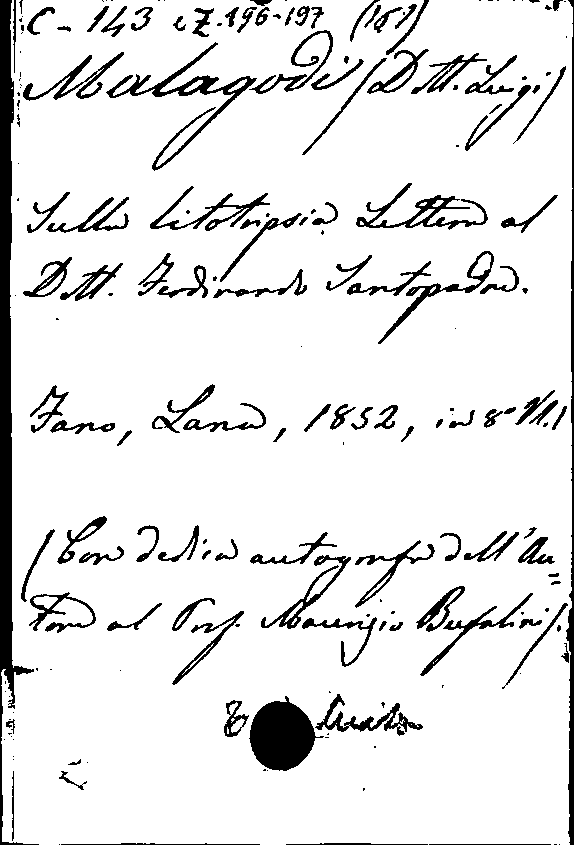 C - 143 e Z. 196-197 (161)
Malagodi (Dott. Luigi)
Sulla litotripsia Lettera al
Dott. Ferdinando Santopadre.
Fano, Lana, 1852, in 8°
(Con dedica autografa dell'Au=
tore al Prof. Maurizio Bufalini).